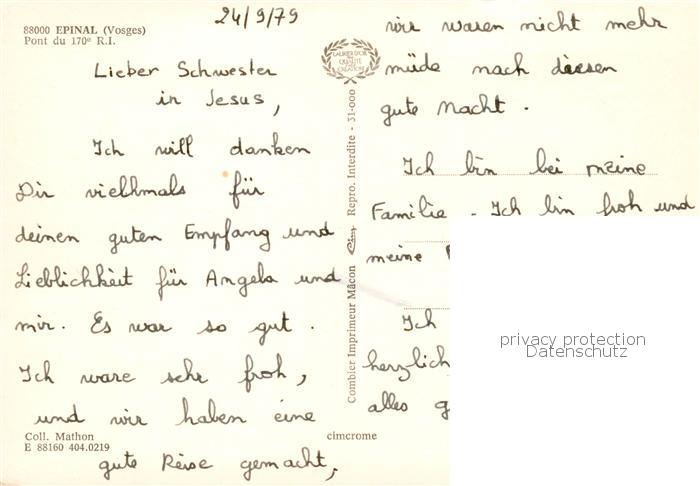 88000 EPINAL (Vosges)
Pont du 170e R.I.
24/9/79
Lieber Schwester
in Jesus,
Ich will danken
Dir vielhmals für
deinen guten Empfang und
Lieblichkeit für Angela und
mir. Es war so gut.
Ich ware sehr froh,
und wir haben eine
gute Reise gemacht,
Coll. Mathon
E 88160 404.0219
cimcrome
LAURIER D'OR
DE LA
QUALITÉ
CRÉATION
Combier Imprimeur Mâcon Repro. Interdite - 31-000
wir waren nicht mehr
müde nach diesen
gute Nacht.
Ich bin bei meine
Familie. Ich bin froh und
meine
Ich
herzlich
alles g
privacy protection
Datenschutz